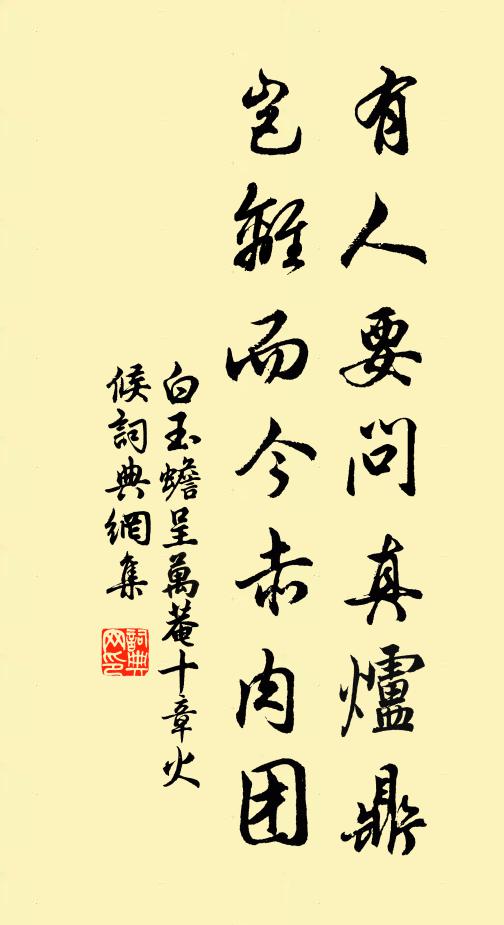 有人要問真爐鼎
豈離而今赤肉团
白玉蟾呈萬菴十章火
候詞典網集
詞典网印